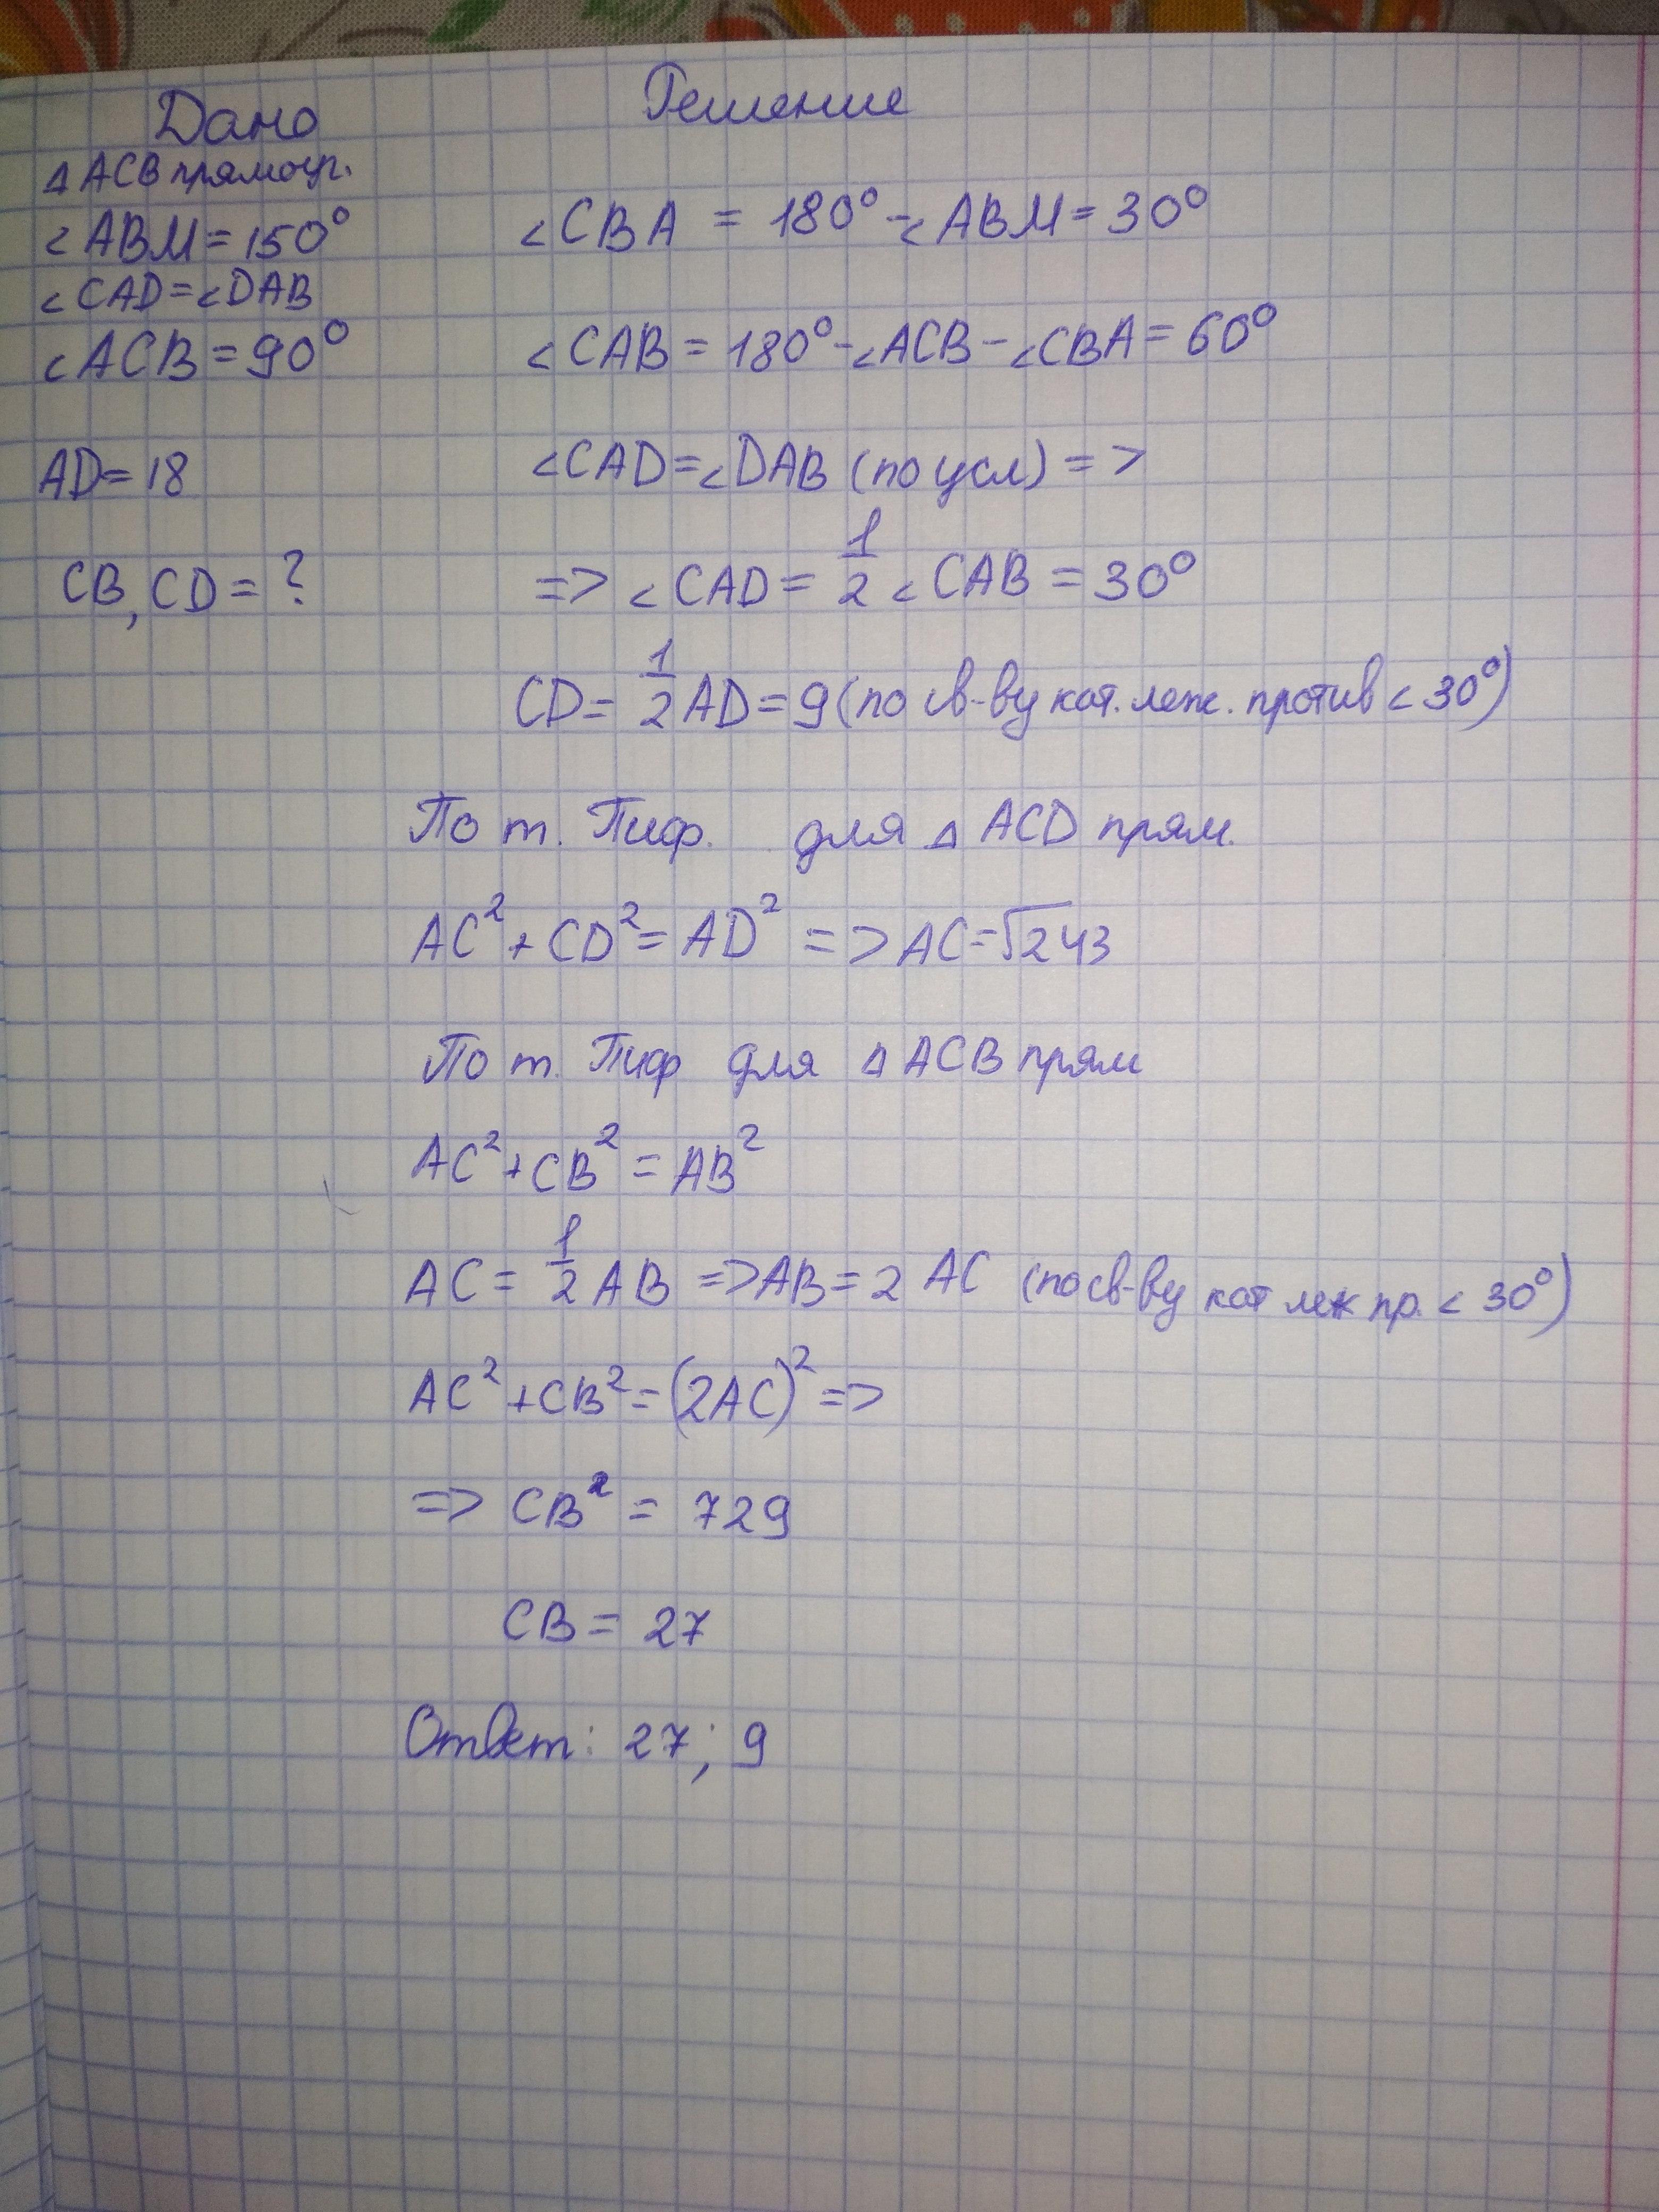 Дано
△ ACB прямоуг.
∠ABM = 150°
∠CAD = ∠DAB
∠ACB = 90°
AD = 18
CB, CD = ?
Решение
∠CBA = 180° - ∠ABM = 30°
∠CAB = 180° - ∠ACB - ∠CBA = 60°
∠CAD = ∠DAB (по усл) =>
=> ∠CAD = 1/2 ∠CAB = 30°
CD = 1/2 AD = 9 (по св-ву кат. леж. против ∠30°)
По т. Пиф. для △ ACD прям.
AC² + CD² = AD² => AC = √243
По т. Пиф для △ ACB прям
AC² + CB² = AB²
AC = 1/2 AB => AB = 2 AC (по св-ву кат леж пр. ∠ 30°)
AC² + CB² = (2AC)² =>
=> CB² = 729
CB = 27
Ответ: 27; 9